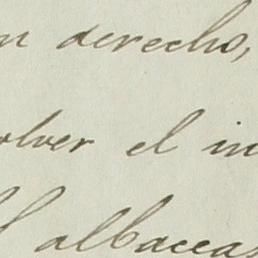 n derecho,
olver el in
l albaceas